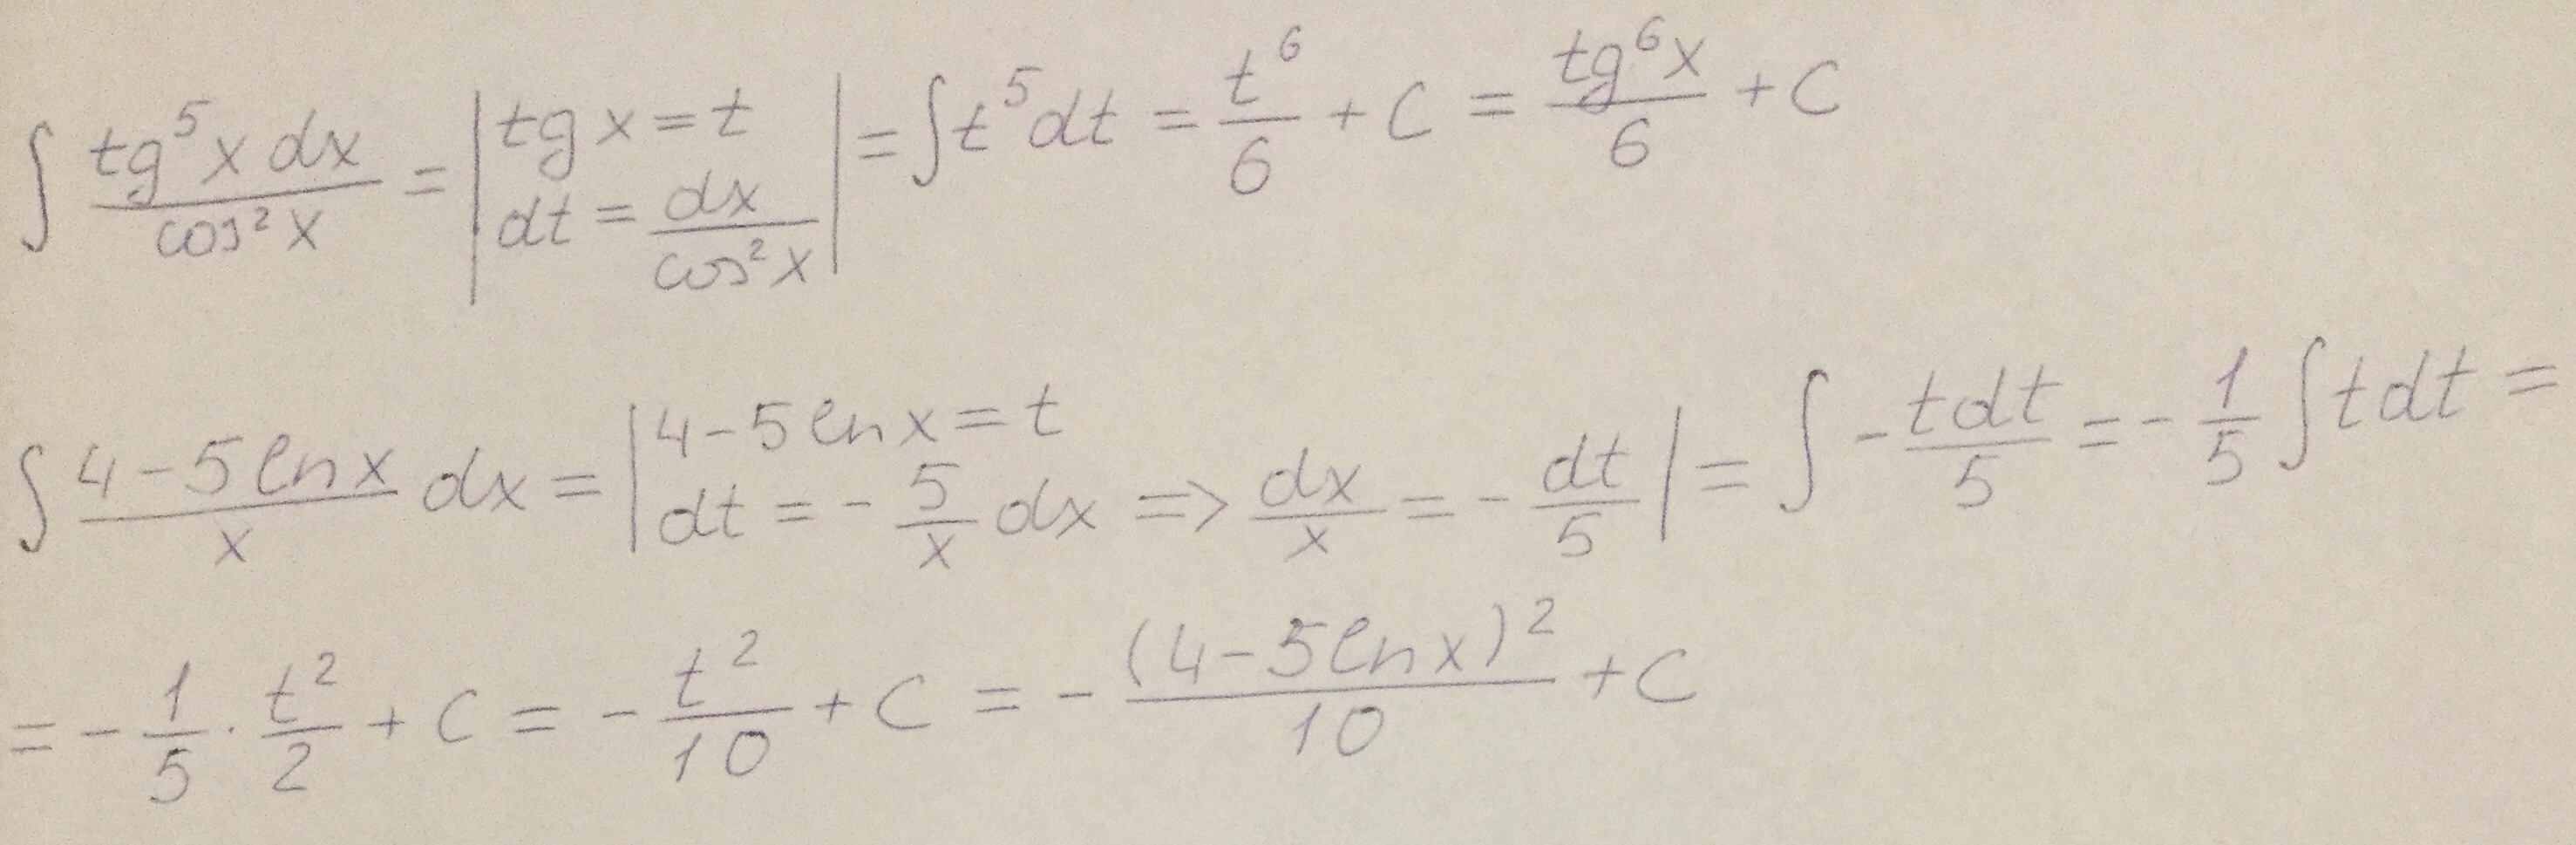 ∫ tg⁵x dx / cos²x = | tg x = t; dt = dx / cos²x | = ∫ t⁵dt = t⁶/6 + C = tg⁶x / 6 + C
∫ (4 - 5 ln x)/x dx = | 4 - 5 ln x = t; dt = - 5/x dx => dx/x = - dt/5 | = ∫ - tdt/5 = - 1/5 ∫ t dt =
= - 1/5 · t²/2 + C = - t²/10 + C = - (4 - 5 ln x)²/10 + C